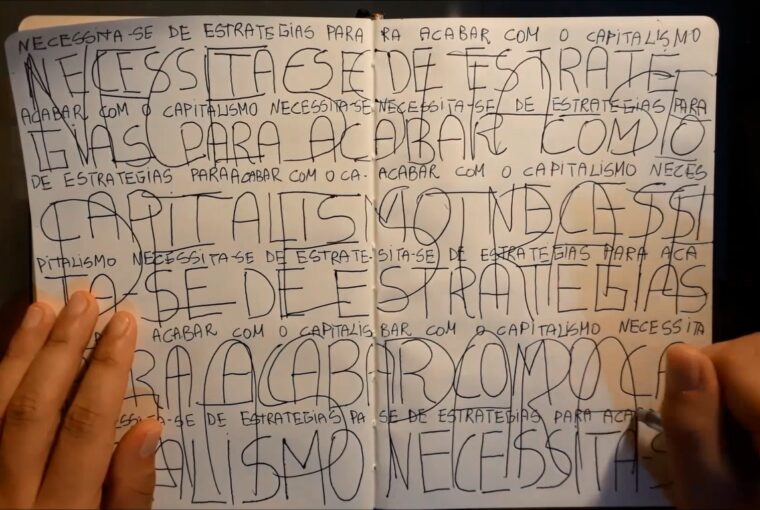 NECESSITA-SE DE ESTRATEGIAS PARA RA ACABAR COM O CAPITALISMO
NECESSITA-SE DE ESTRATE
ACABAR COM O CAPITALISMO NECESSITA-SE NECESSITA-SE DE ESTRATEGIAS PARA
GIAS PARA ACABAR COM O
DE ESTRATEGIAS PARA ACABAR COM O CA- ACABAR COM O CAPITALISMO NECES
CAPITALISMO NECESSI
PITALISMO NECESSITA-SE DE ESTRATE- SITA-SE DE ESTRATEGIAS PARA ACA
TA-SE DE ESTRATEGIAS
ACABAR COM O CAPITALIS BAR COM O CAPITALISMO NECESSITA
RA ACABAR COM O CA
ESSITA-SE DE ESTRATEGIAS PA SE DE ESTRATEGIAS PARA ACABA
ALISMO NECESSITA-S